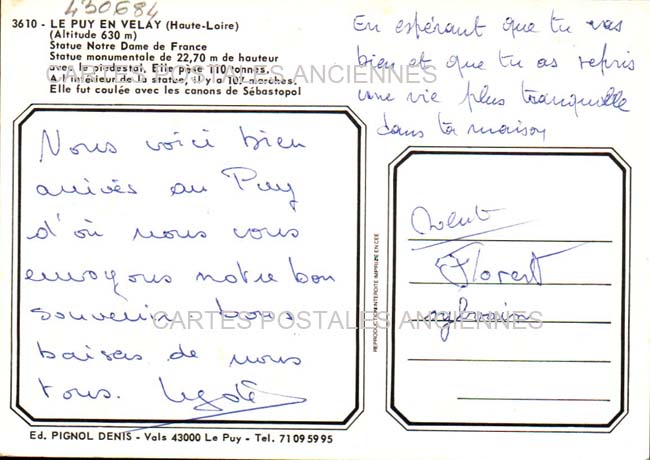 430684
3610 - LE PUY EN VELAY (Haute-Loire)
(Altitude 630 m)
Statue Notre Dame de France
Statue monumentale de 22,70 m de hauteur
avec le piédestal. Elle pèse 110 tonnes.
A l'intérieur de la statue, il y a 107 marches.
Elle fut coulée avec les canons de Sébastopol
CARTES POSTALES ANCIENNES
En espérant que tu vas
bien et que tu as repris
une vie plus tranquille
dans ta maison
Nous voici bien
arrivés au Puy
d'où nous vous
envoyons notre bon
souvenir bons
baisers de nous
tous.
REPRODUCTION INTERDITE IMPRIMÉ EN CEE
Florent
Sylvain
CARTES POSTALES ANCIENNES
Ed. PIGNOL DENIS - Vals 43000 Le Puy - Tel. 71 09 59 95